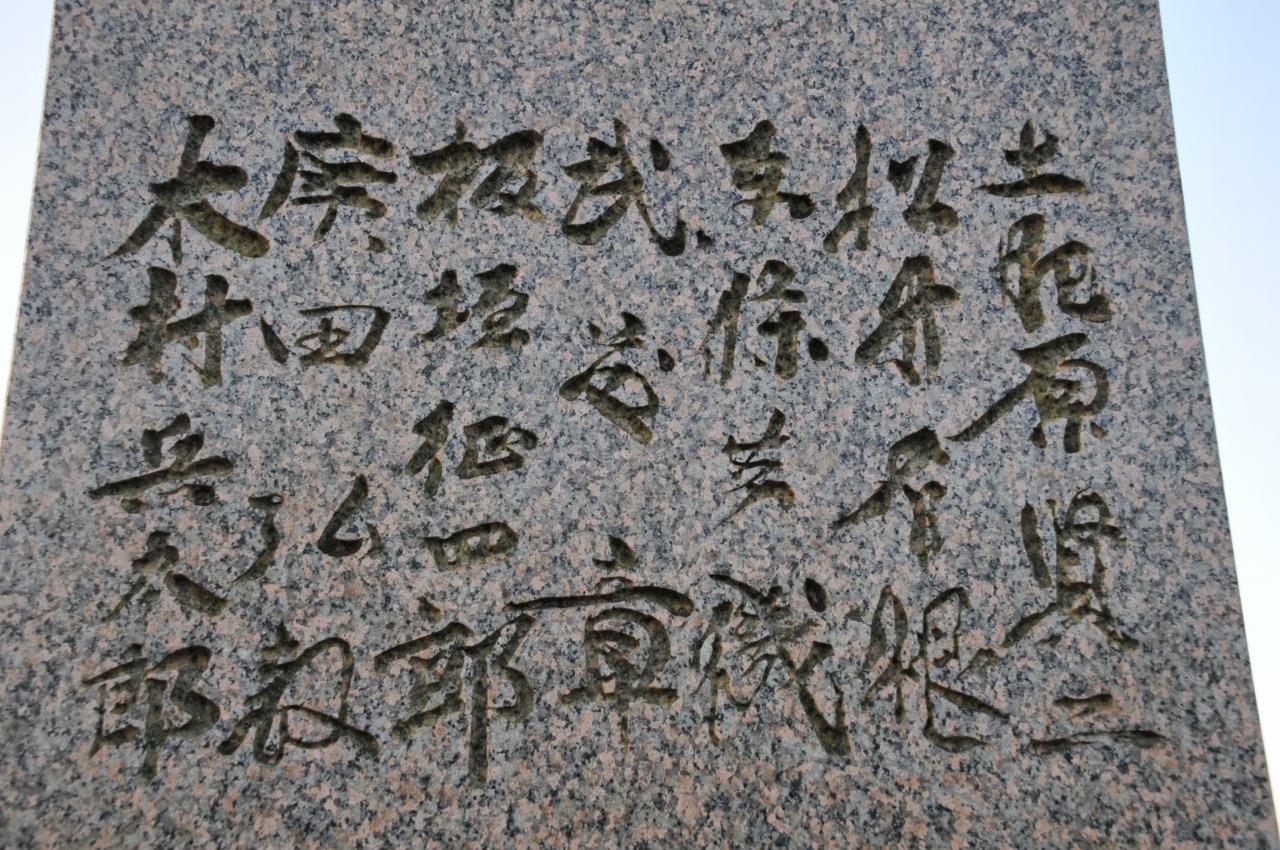 土肥原賢二
松井石根
東條英機
武藤章
板垣征四郎
廣田弘毅
木村兵太郎